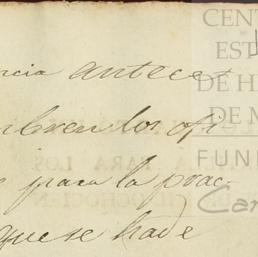 ncia anteces
mbren los ofi
para la prac
que se hade
CENT
EST
DE H
DE M
FUN
Car